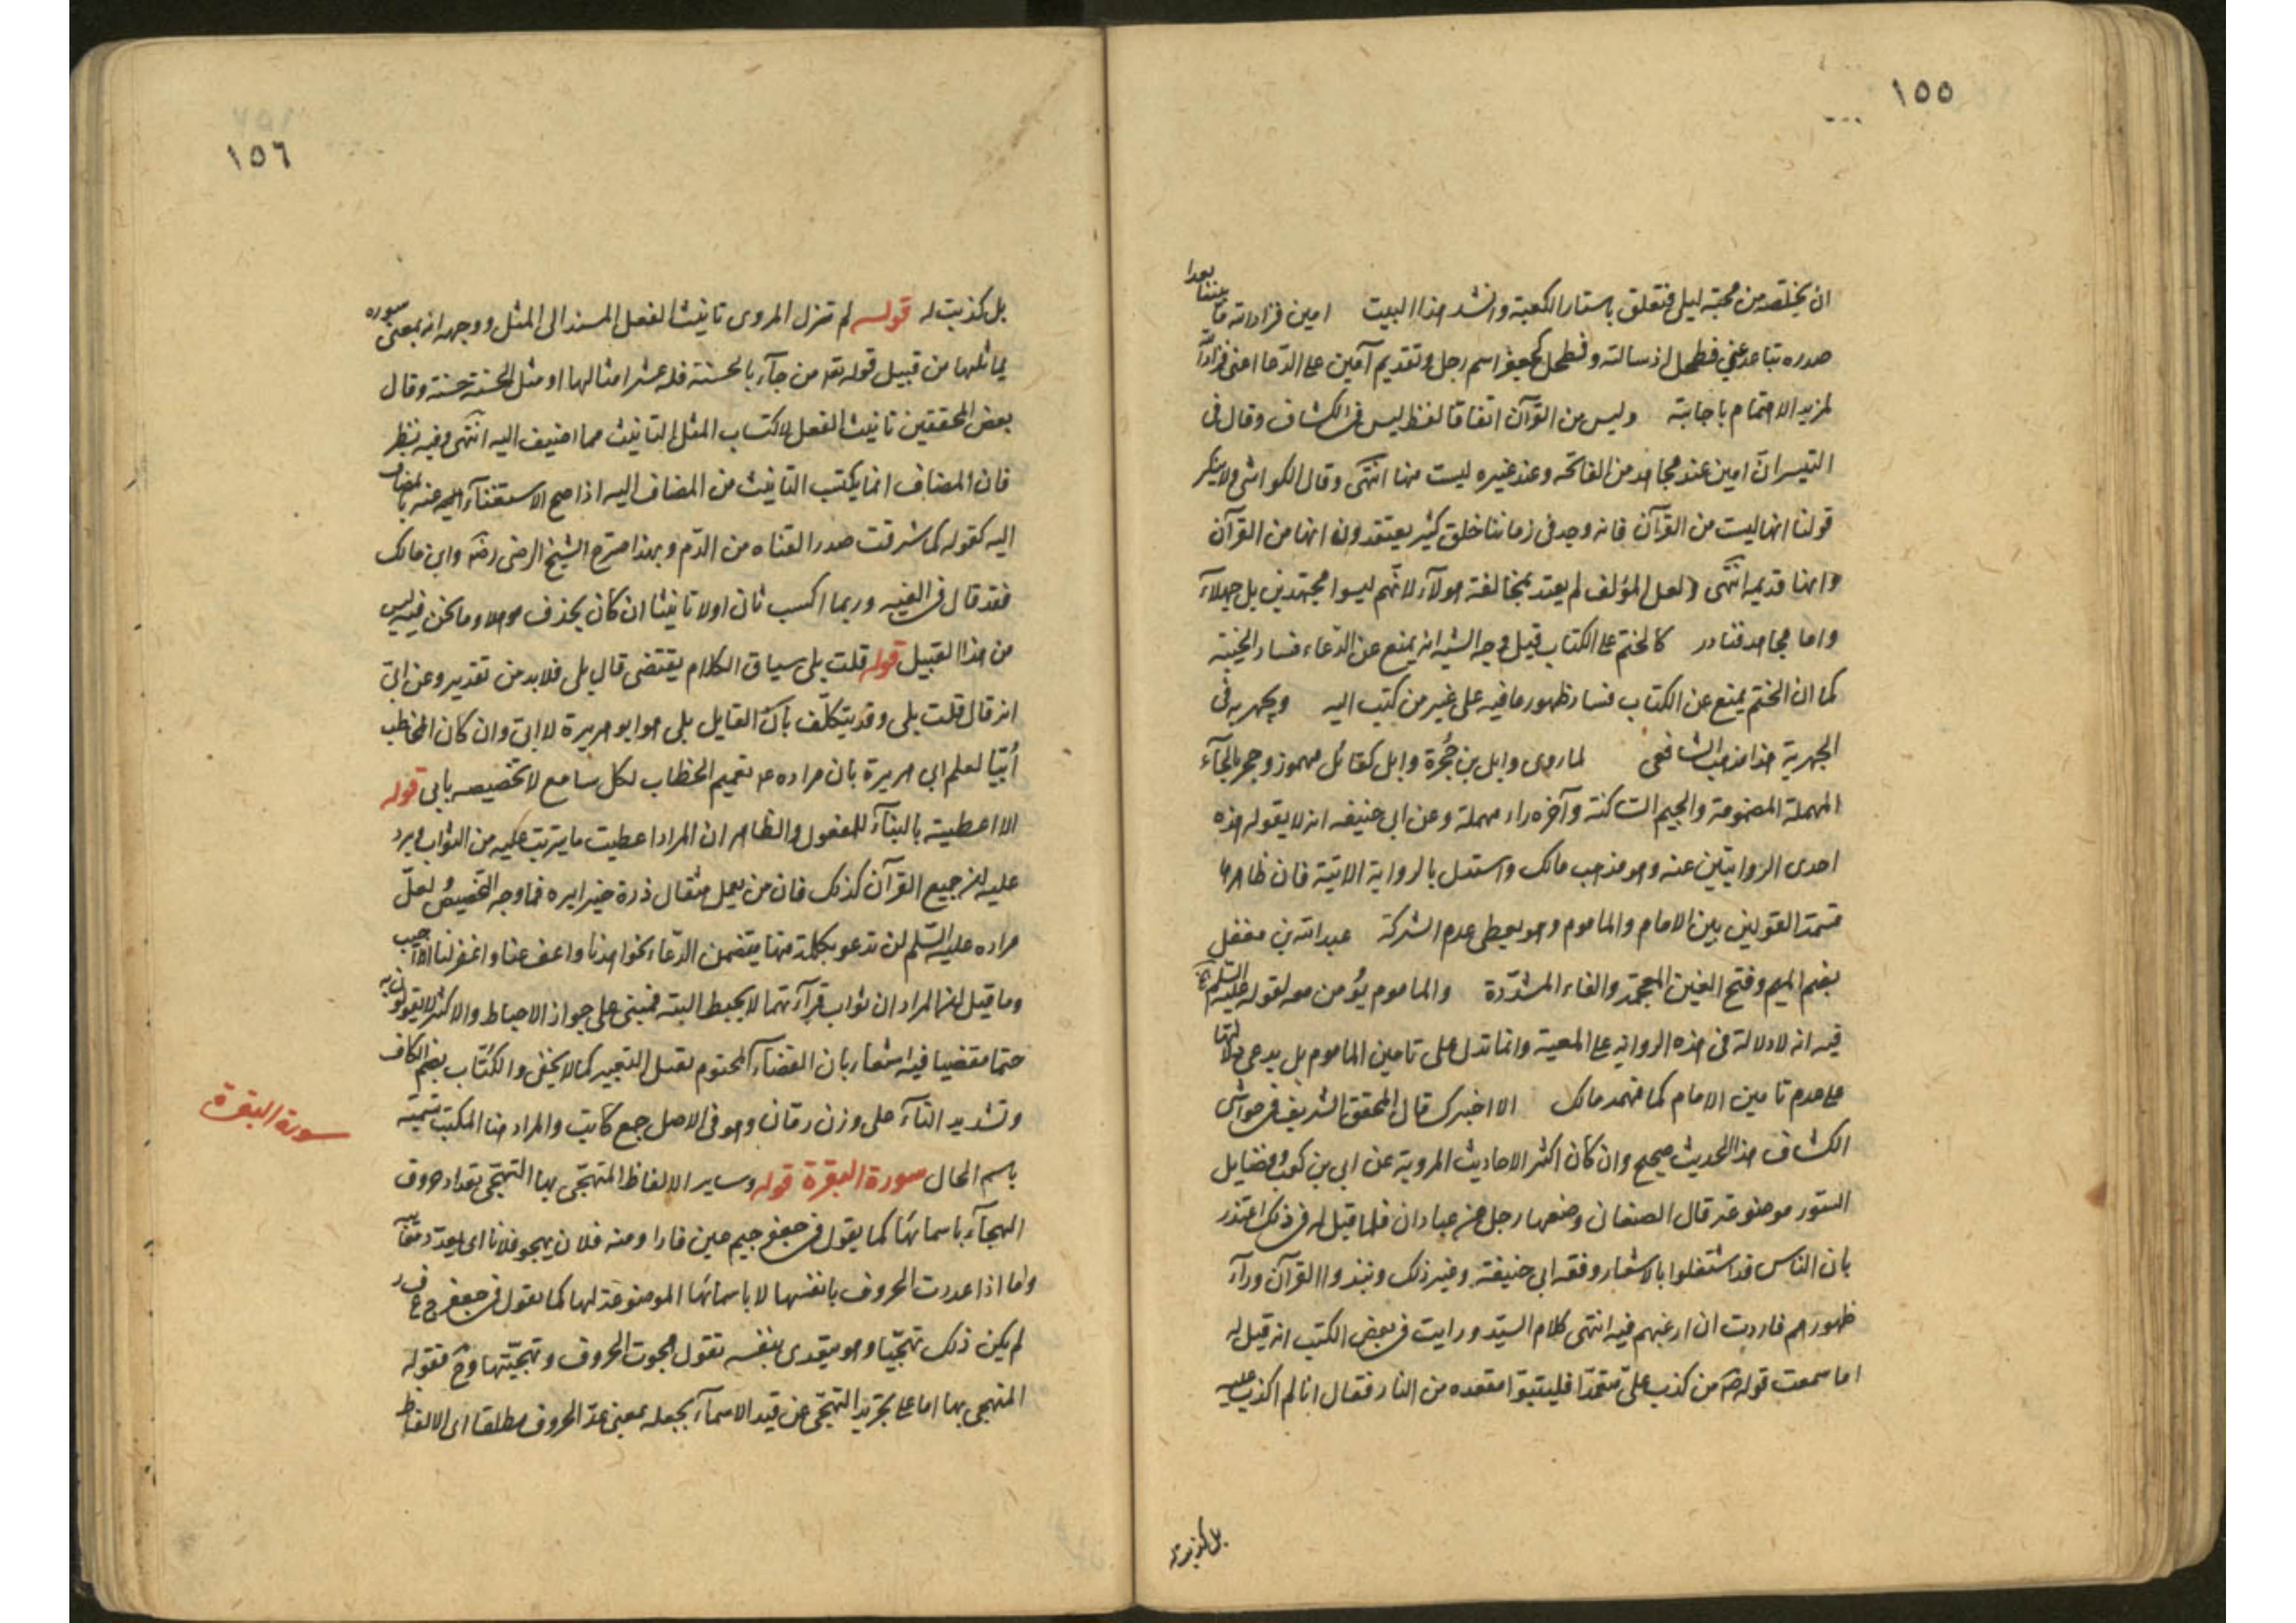 ١٥٥
ان يخلصه من محبة ليلى فتعلق باستار الكعبة وانشد هذا البيت امين فزاد الله ما بيننا بعدا
صدره تباعد عني فطحل اذ سالته وفطحل كجعفر اسم رجل وتقديم آمين على الدعا اعنى فزاد الله
لمزيد الاهتمام باجابته وليس من القرآن اتفاقا لفظ ليس في الكشاف وقال في
التيسير ان امين عند مجاهد من الفاتحه وعند غيره ليست منها انتهى وقال الكواشى ولا ينكر
قولنا انها ليست من القرآن فانه وجد في زماننا خلق كثير يعتقدون انها من القرآن
وانها قديمه انتهى ولعل المؤلف لم يعتد بمخالفة هولآء لانهم ليسوا مجتهدين بل جهلآء
واما مجاهد فنادر كالختم على الكتاب قيل وجه الشبه انه يمنع عن الدعاء فساد الخيبة
كما ان الختم يمنع عن الكتاب فساد ظهور ما فيه على غير من كتب اليه ويجهر به في
الجهرية هذا مذهب الشافعى لما روى وايل بن حُجرة وايل كقائل مهموز وحجر بالحآء
المهملة المضمومة والجيم الساكنة وآخره راء مهملة وعن ابى حنيفه انه لا يقوله هذه
احدى الروايتين عنه وهو مذهب مالك واستدل بالرواية الاتية فان ظاهرها
قسمة القولين بين الامام والماموم وهو يعطى عدم الشركة عبد الله بن مغفل
بضم الميم وفتح الغين المعجمة والفاء المشددة والماموم يؤمن معه لقوله عليه السلم
فيه انه لا دلالة في هذه الروايه على المعية وانما تدل على تامين الماموم بل يدعى دلالتها
على عدم تامين الامام كما فهمه مالك الا اخبرك قال المحقق الشريف في حواشى
الكشاف هذا الحديث صحيح وان كان اكثر الاحاديث المروية عن ابى بن كعب في فضايل
السور موضوعة قال الصغانى وضعها رجل من عبادان فلما قيل له في ذلك اعتذر
بان الناس قد اشتغلوا بالاشعار وفقه ابى حنيفة وغير ذلك ونبذوا القرآن ورآء
ظهورهم فاردت ان ارغبهم فيه انتهى كلام السيد ورايت في بعض الكتب انه قيل له
اما سمعت قوله من كذب على متعمدا فليتبوا مقعده من النار فقال انا لم اكذب عليه
بل كذبت له
١٥٦
بل كذبت له قوله لم تنزل المروى تانيث الفعل المسند الى المثل ووجهه انه بمعنى سوره
يماثلها من قبيل قوله تعه من جآء بالحسنة فله عشر امثالها او مثل الحسنة حسنة وقال
بعض المحققين تانيث الفعل لاكتساب المثل التانيث مما اضيف اليه انتهى وفيه نظر
فان المضاف انما يكتسب التانيث من المضاف اليه اذا صح الاستغنآء عنه بالمضاف
اليه كقوله كما شرقت صدر القناه من الدم وبهذا صرح الشيخ الرضى رضه وابن مالك
فقد قال في الفيه وربما اكسب ثان اولا تانيثا ان كان بحذف موهلا وما نحن فيه ليس
من هذا القبيل قوله قلت بلى سياق الكلام يقتضى قال بلى فلابد من تقدير وعن ابى
انه قال قلت بلى وقد يتكلف بان القايل بلى هو ابو هريرة لا ابى وان كان المخاطب
أبيّا لعلم ابى هريرة بان مراده عه تعميم الخطاب لكل سامع لا تخصيصه بابى قوله
الا اعطيته بالبنآء للمفعول والظاهر ان المراد اعطيت ما يترتب عليه من الثواب ويرد
عليه ان جميع القرآن كذلك فان من يعمل مثقال ذرة خيرا يره فما وجه التخصيص ولعلّ
مراده عليه السلم لن تدعو بكلمة منها يتضمن الدعاء نحو اهدنا واعف عنا واغفر لنا الا اجيب
وما قيل ان المراد ان ثواب قرآءتهما لا يحبط البته فمبنى على جواز الاحباط والاكثر لا يقولون به
حتما مقضيا فيه اشعار بان القضآء المحتوم يقبل التغيير كما لا يخفى والكُتّاب بضم الكاف
وتشديد التآء على وزن رمّان وهو في الاصل جمع كاتب والمراد هنا المكتب تسميته
سورة البقرة
باسم الحال سورة البقرة قوله وساير الالفاظ المتهجّى بها التهجّى تعداد حروف
الهجآء باسمائها كما يقول في جعفر جيم عين فا را ومنه فلان يهجو فلانا اى يعدد معايبه
واما اذا عددت الحروف بانفسها لا باسمائها الموضوعة لها كما يقول في جعفر ج ع ف ر
لم يكن ذلك تهجّيا وهو يتعدى بنفسه تقول هجوت الحروف وتهجّيتها وح فقوله
المتهجى بها اما على تجريد التهجّى عن قيد الاسمآء بجعله بمعنى عدّ الحروف مطلقا اى الالفاظ